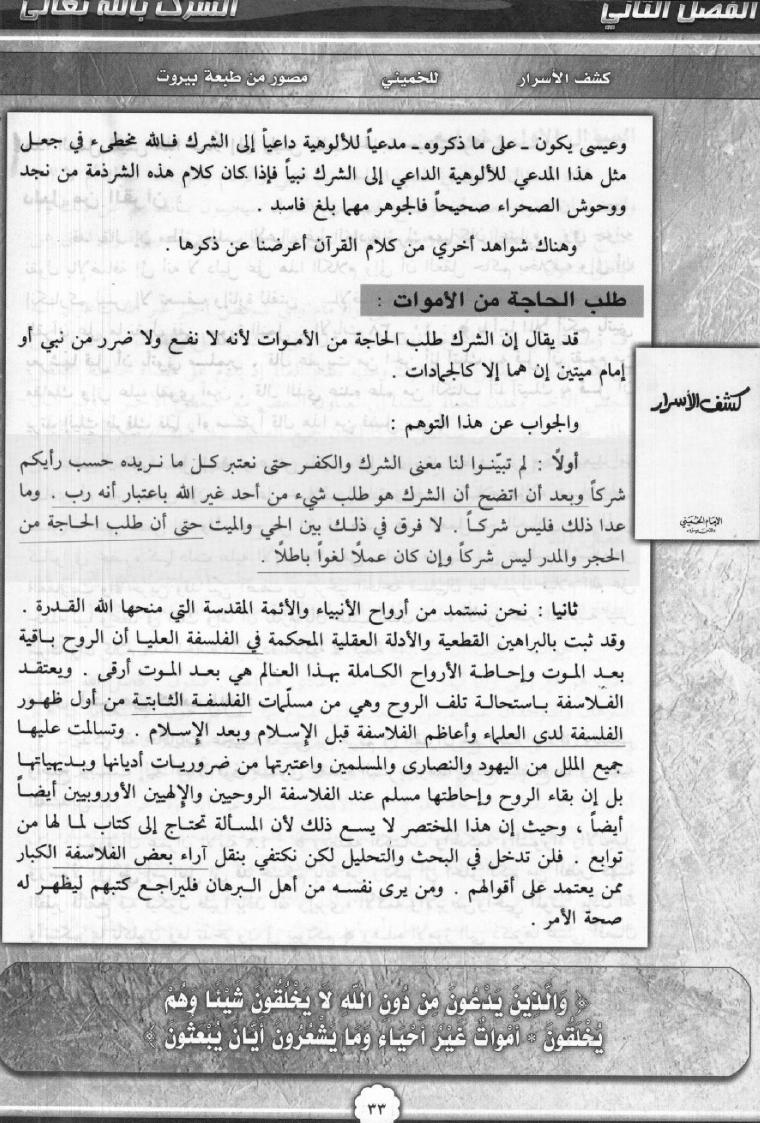 الفصل الثاني
الشرك بالله تعالى
كشف الأسرار للخميني مصور من طبعة بيروت
وعيسى يكون ـ على ما ذكروه ـ مدعياً للألوهية داعياً إلى الشرك فالله مخطىء في جعل
مثل هذا المدعي للألوهية الداعي إلى الشرك نبياً فإذا كان كلام هذه الشرذمة من نجد
ووحوش الصحراء صحيحاً فالجوهر مهما بلغ فاسد .
وهناك شواهد أخري من كلام القرآن أعرضنا عن ذكرها
طلب الحاجة من الأموات :
قد يقال إن الشرك طلب الحاجة من الأموات لأنه لا نفع ولا ضرر من نبي أو
إمام ميتين إن هما إلا كالجمادات .
والجواب عن هذا التوهم :
أولاً : لم تبيّنوا لنا معنى الشرك والكفر حتى نعتبر كل ما نريده حسب رأيكم
شركاً وبعد أن اتضح أن الشرك هو طلب شيء من أحد غير الله باعتبار أنه رب . وما
عدا ذلك فليس شركاً . لا فرق في ذلك بين الحي والميت حتى أن طلب الحاجة من
الحجر والمدر ليس شركاً وإن كان عملاً لغواً باطلاً .
ثانيا : نحن نستمد من أرواح الأنبياء والأئمة المقدسة التي منحها الله القدرة .
وقد ثبت بالبراهين القطعية والأدلة العقلية المحكمة في الفلسفة العليا أن الروح باقية
بعد الموت وإحاطة الأرواح الكاملة بهذا العالم هي بعد الموت أرقى ويعتقد
الفلاسفة باستحالة تلف الروح وهي من مسلّمات الفلسفة الثابتة من أول ظهور
الفلسفة لدى العلماء وأعاظم الفلاسفة قبل الإسلام وبعد الإسلام . وتسالمت عليها
جميع الملل من اليهود والنصارى والمسلمين واعتبرتها من ضروريات أديانها وبديهياتها
بل إن بقاء الروح وإحاطتها مسلم عند الفلاسفة الروحيين والإلهيين الأوروبيين أيضاً
أيضاً ، وحيث إن هذا المختصر لا يسع ذلك لأن المسألة تحتاج إلى كتاب لما لها من
توابع . فلن ندخل في البحث والتحليل لكن نكتفي بنقل آراء بعض الفلاسفة الكبار
ممن يعتمد على أقوالهم . ومن يرى نفسه من أهل البرهان فليراجع كتبهم ليظهر له
صحة الأمر .
كشف الأسرار
الإمام الخميني
﴿ وَالَّذِينَ يَدْعُونَ مِن دُونِ اللَّهِ لا يَخْلُقُونَ شَيْئًا وَهُمْ
يُخْلَقُونَ * أَمْوَاتٌ غَيْرُ أَحْيَاءٍ وَمَا يَشْعُرُونَ أَيَّانَ يُبْعَثُونَ ﴾
٣٣